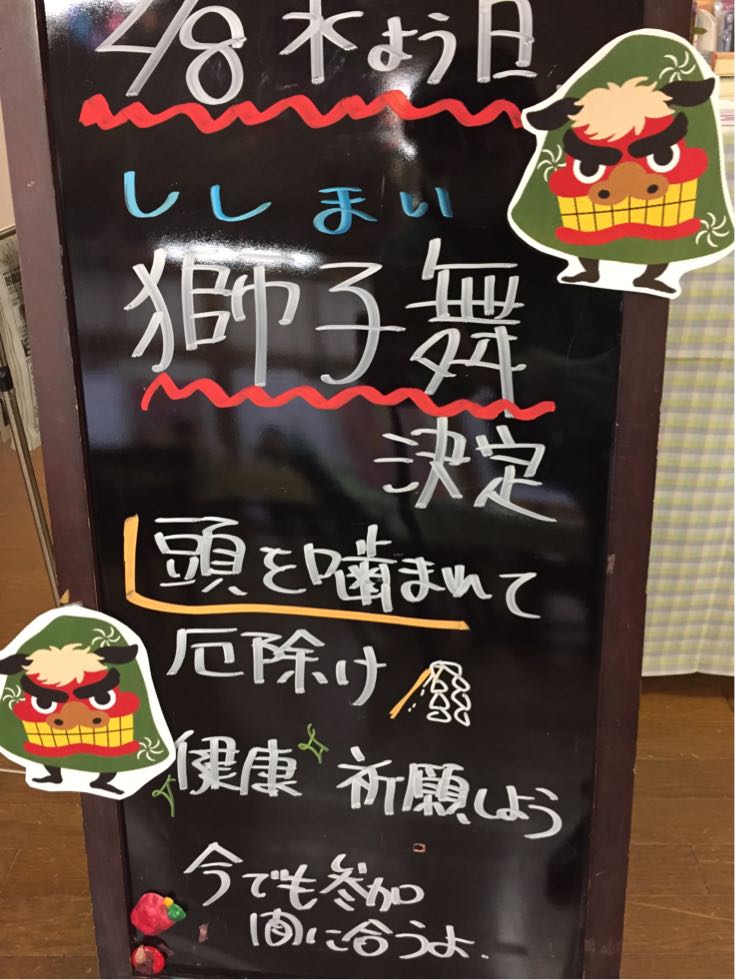 2/8 水よう日
ししまい
獅子舞
決定
頭を噛まれて
厄除け
健康 祈願しよう
今でも参加
間に合うよ.